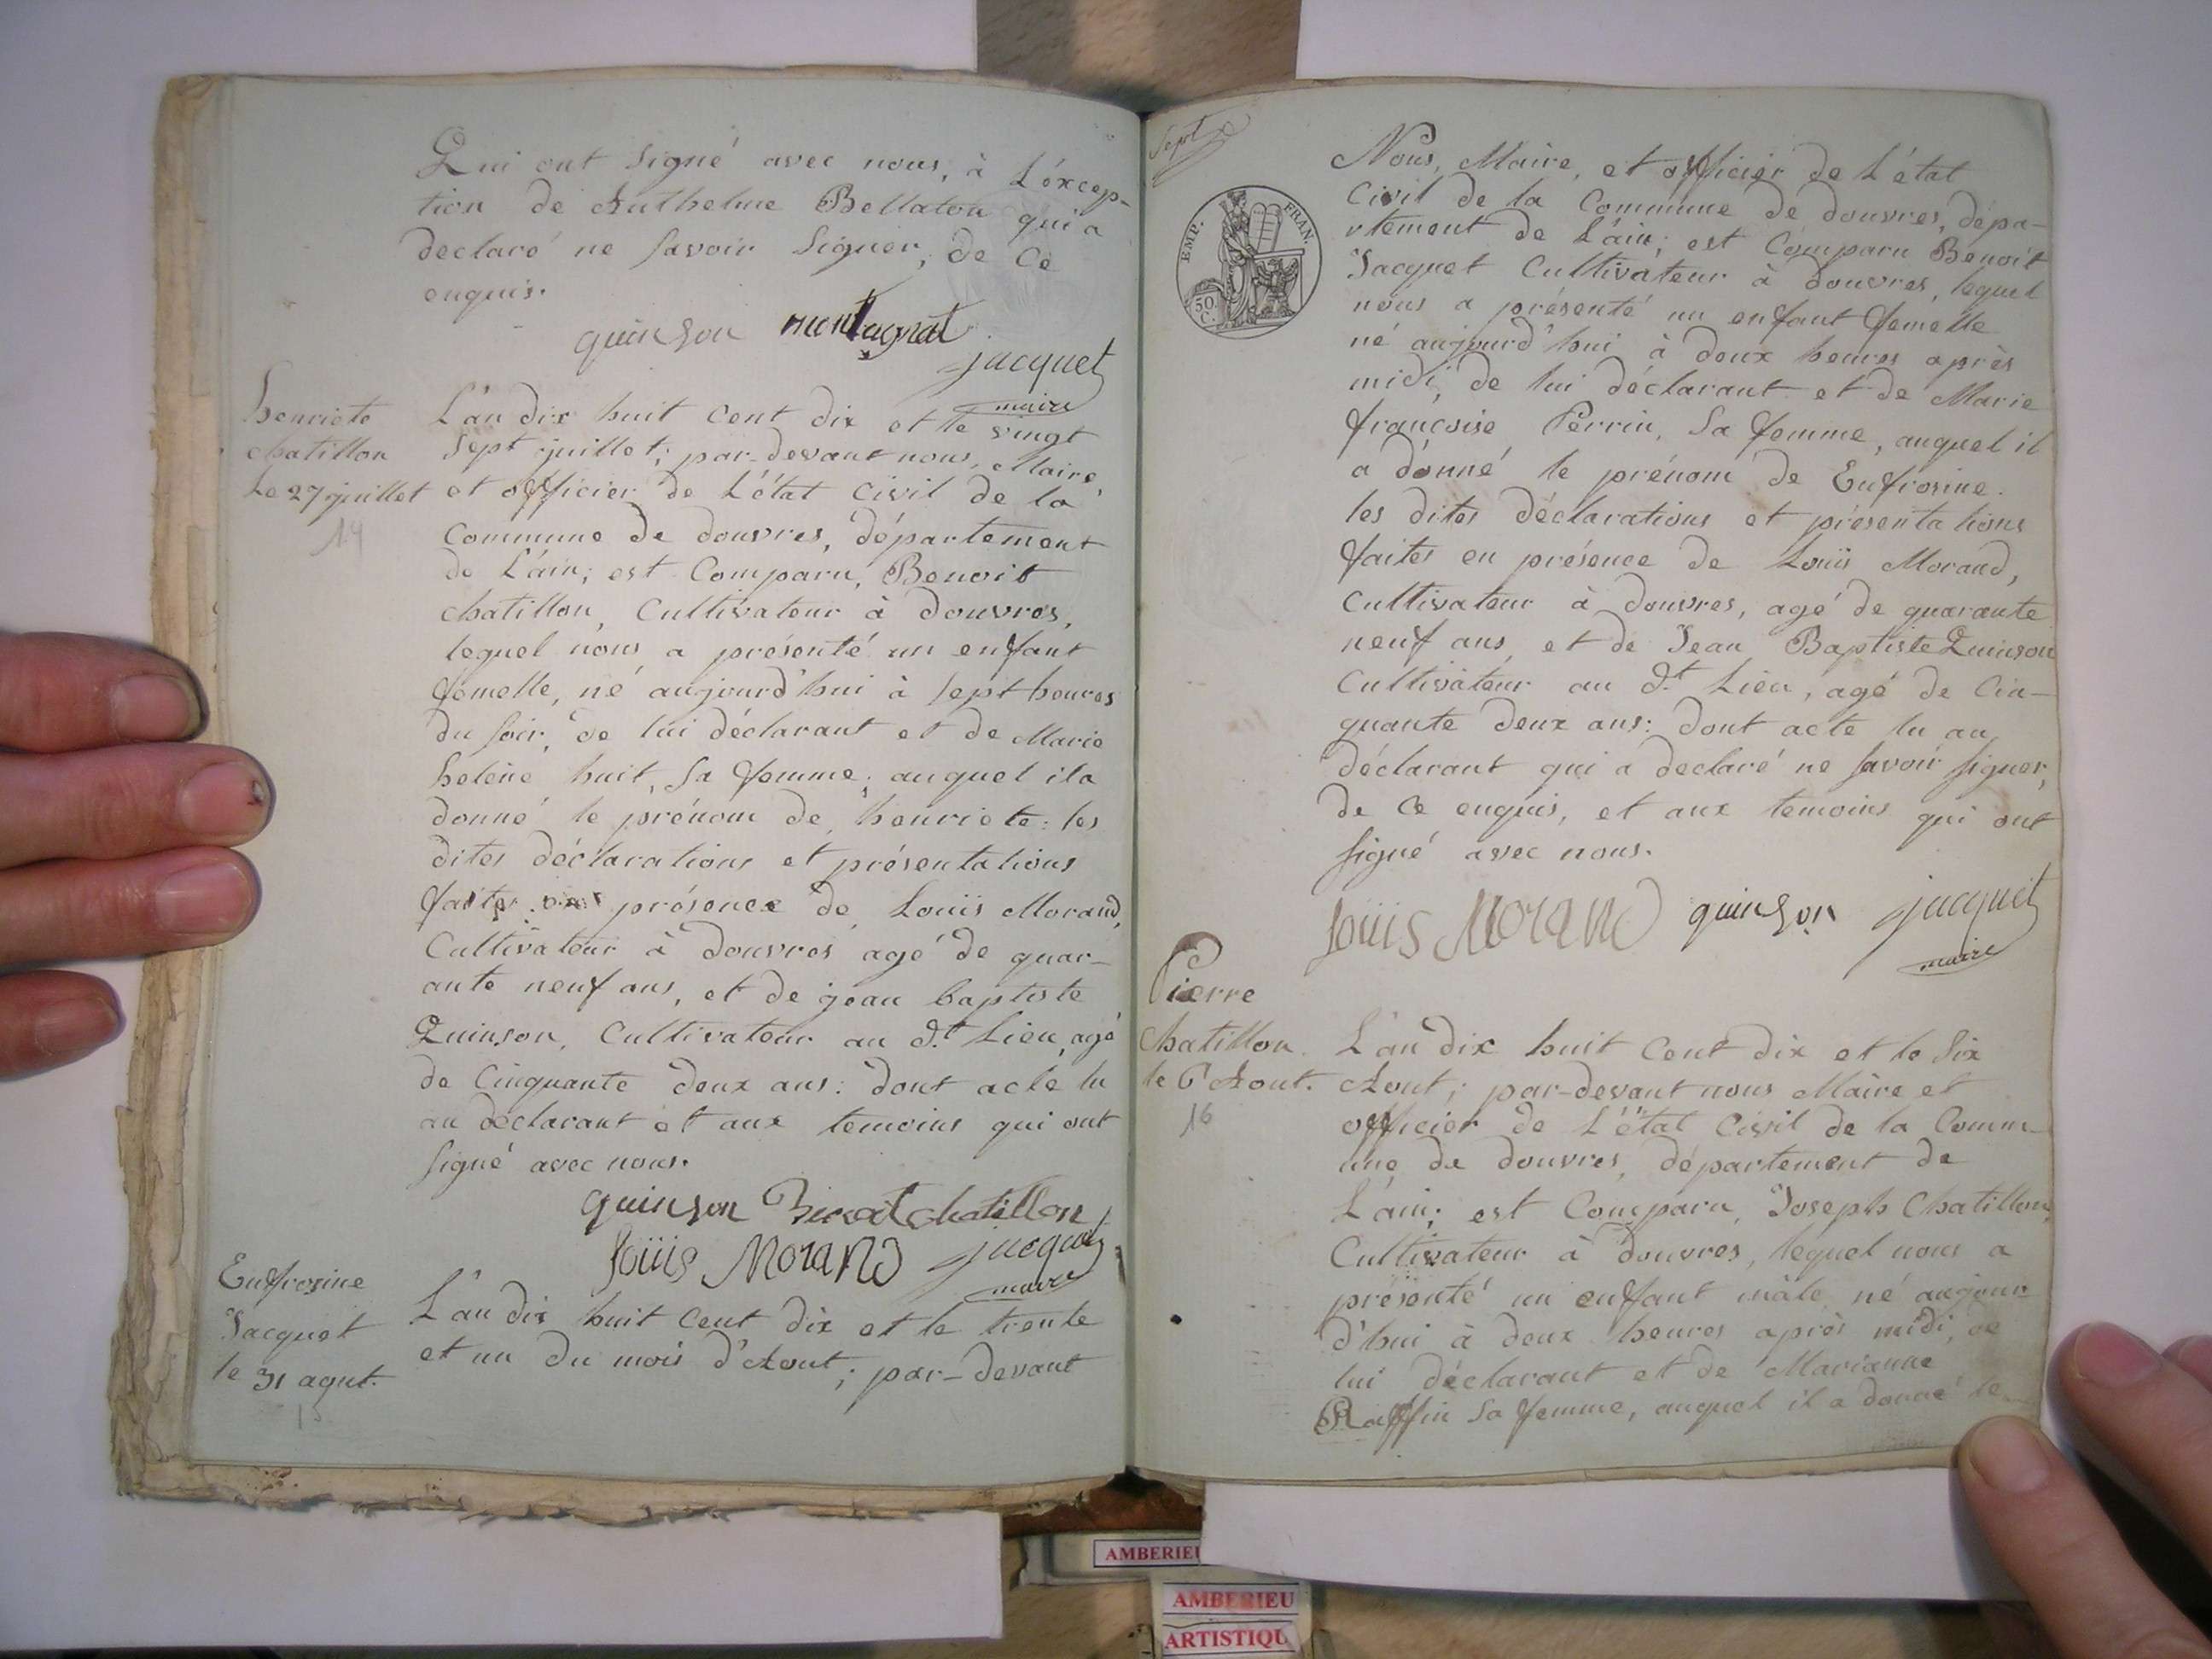 Qui ont signé avec nous, à L'éxcep-
tion de Anthelme Bellaton qui a
declaré ne savoir signer, de ce
enquis.
quinson montagnat
jacquet
maire
henriete
chatillon
Le 27 juillet
14
L'an dix huit cent dix et le vingt
sept juillet; par-devant nous, Maire,
et officier de L'état civil de la
commune de douvres, département
de L'ain; est comparu, Benoit
chatillon, Cultivateur à douvres,
lequel nous a présenté un enfant
femelle, né aujourd'hui à sept heures
du soir, de lui déclarant et de Marie
helène huit, sa femme, auquel il a
donné le prénom de henriete: les
dites déclarations et présentations
faites en présence de Louis Morand,
Cultivateur à douvres agé de quar-
ante neuf ans, et de jean baptiste
Quinson, Cultivateur au d.t Lieu, agé
de Cinquante deux ans: dont acte lu
au déclarant et aux temoins qui ont
signé avec nous.
quinson Benoit chatillon
Louis Morand jacquet
maire
Eufrosine
Jacquet
le 31 aout.
15
L'an dix huit cent dix et le trente
et un du mois d'Aout; par-devant
Sept
EMP. FRAN.
50
C.
Nous, Maire, et officier de L'état
Civil de la Commune de douvres, dépa-
rtement de L'ain; est Comparu Benoit
Jacquet Cultivateur à douvres, lequel
nous a présenté un enfant femelle
né aujourd'hui à deux heures après
midi, de lui déclarant et de Marie
françoise Perrin, sa femme, auquel il
a donné le prénom de Eufrosine.
les dites déclarations et présentations
faites en présence de Louis Morand,
Cultivateur à douvres, agé de quarante
neuf ans, et de Jean Baptiste Quinson
Cultivateur au d.t Lieu, agé de Cin-
quante deux ans: dont acte lu au
déclarant qui a declaré ne savoir signer,
de ce enquis, et aux temoins qui ont
signé avec nous.
Louis Morand quinson jacquet
maire
Pierre
Chatillon
le 6 Aout.
16
L'an dix huit cent dix et le six
Aout; par-devant nous Maire et
officier de L'état Civil de la Comm-
une de douvres, département de
L'ain; est Comparu, Joseph Chatillon,
Cultivateur à douvres, lequel nous a
présenté un enfant mâle né aujour-
d'hui à deux heures après midi, de
lui déclarant et de Marianne
Raffin sa femme, auquel il a donné le
AMBERIEU
AMBERIEU
ARTISTIQU